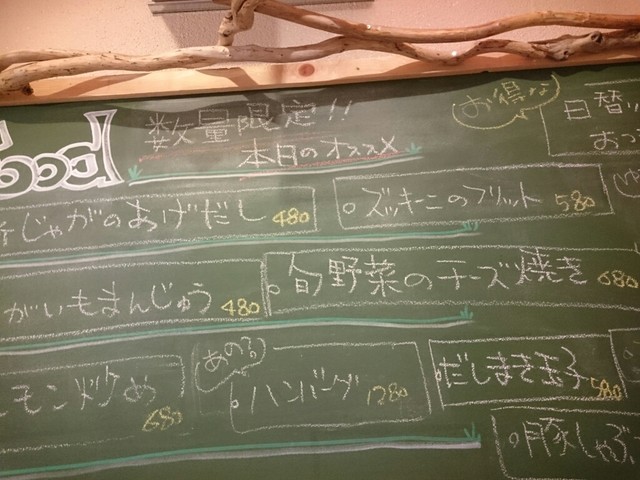 数量限定!!
本日のオススメ
お得な
日替
おっ
新じゃがのあげだし 480
ズッキーニのフリット 580
がいもまんじゅう 480
旬野菜のチーズ焼き 680
モン炒め 680
あの
ハンバーグ 1280
だしまき玉子 580
豚しゃぶ